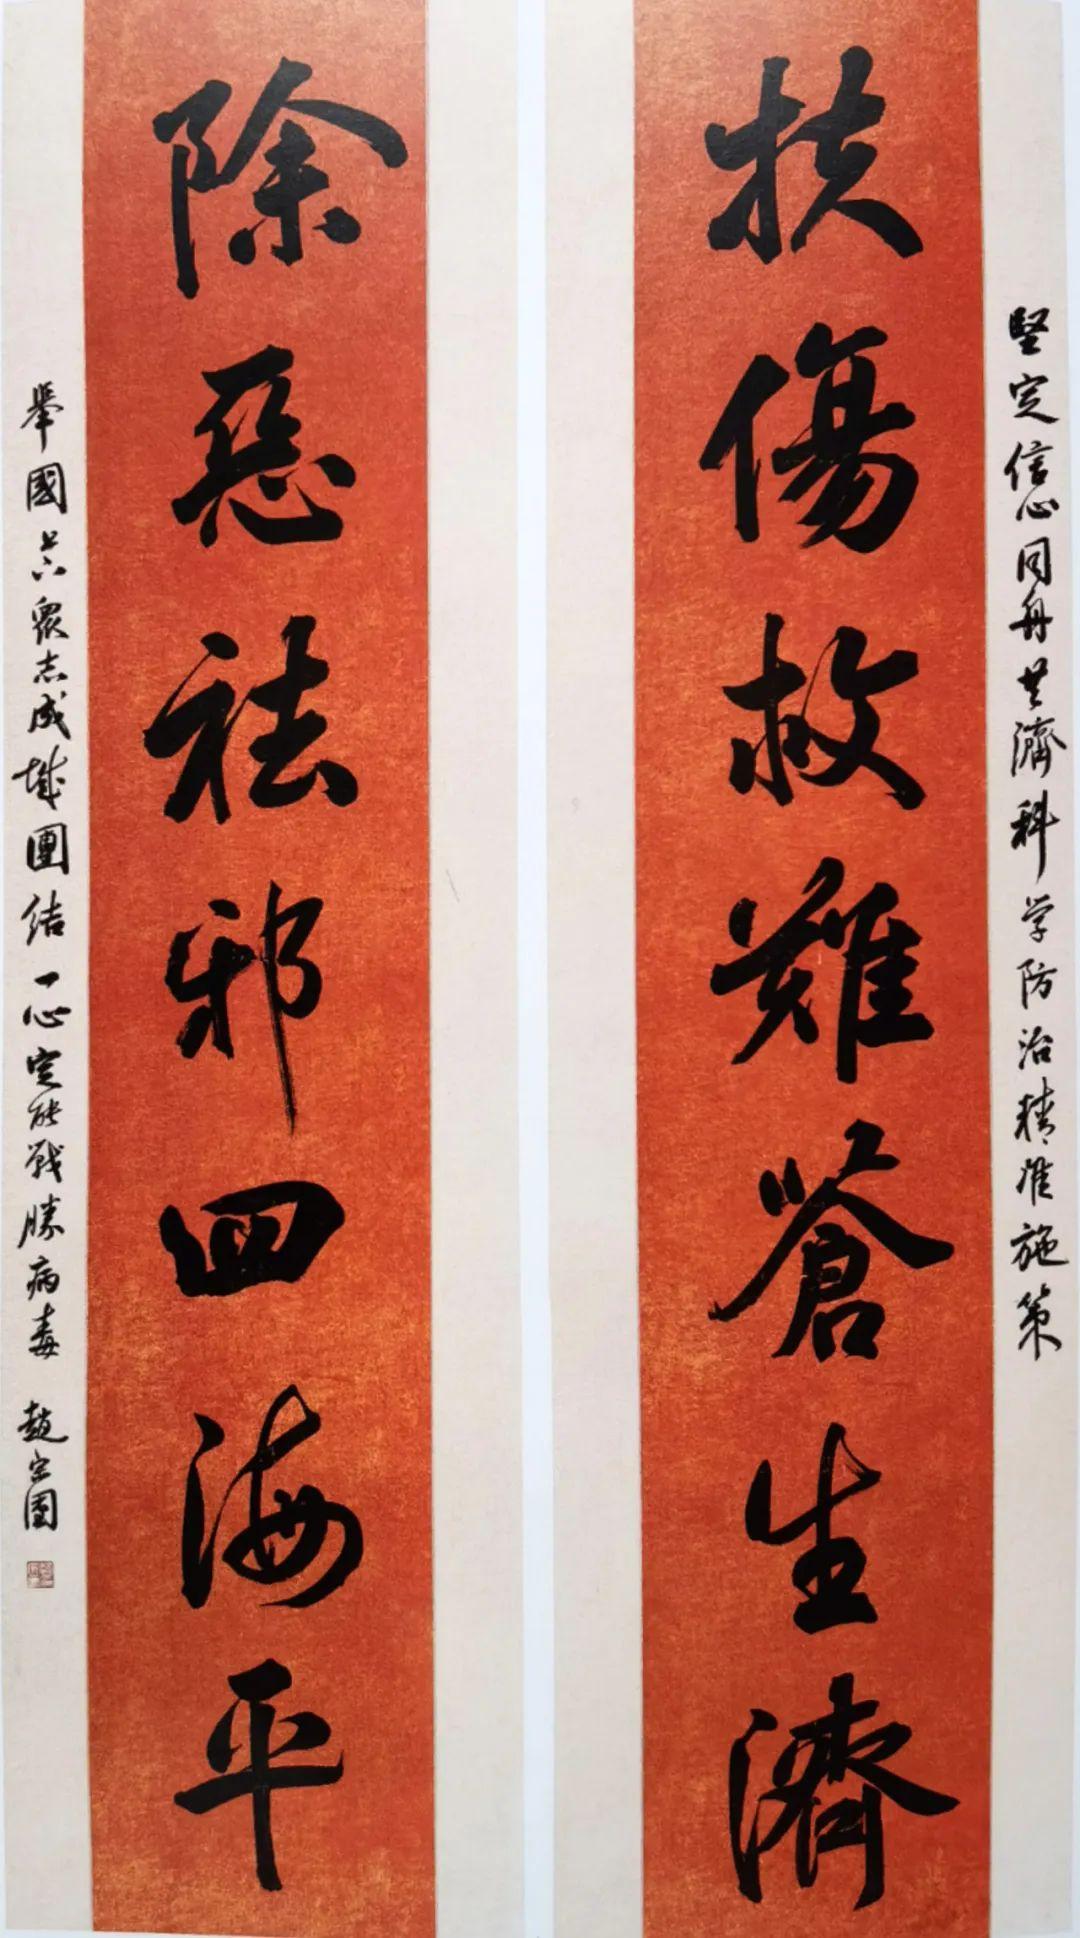 堅定信心同舟共濟科学防治精准施策
扶傷救難蒼生濟
除惡祛邪四海平
舉國上下眾志成城團结一心定能戰勝病毒 趙